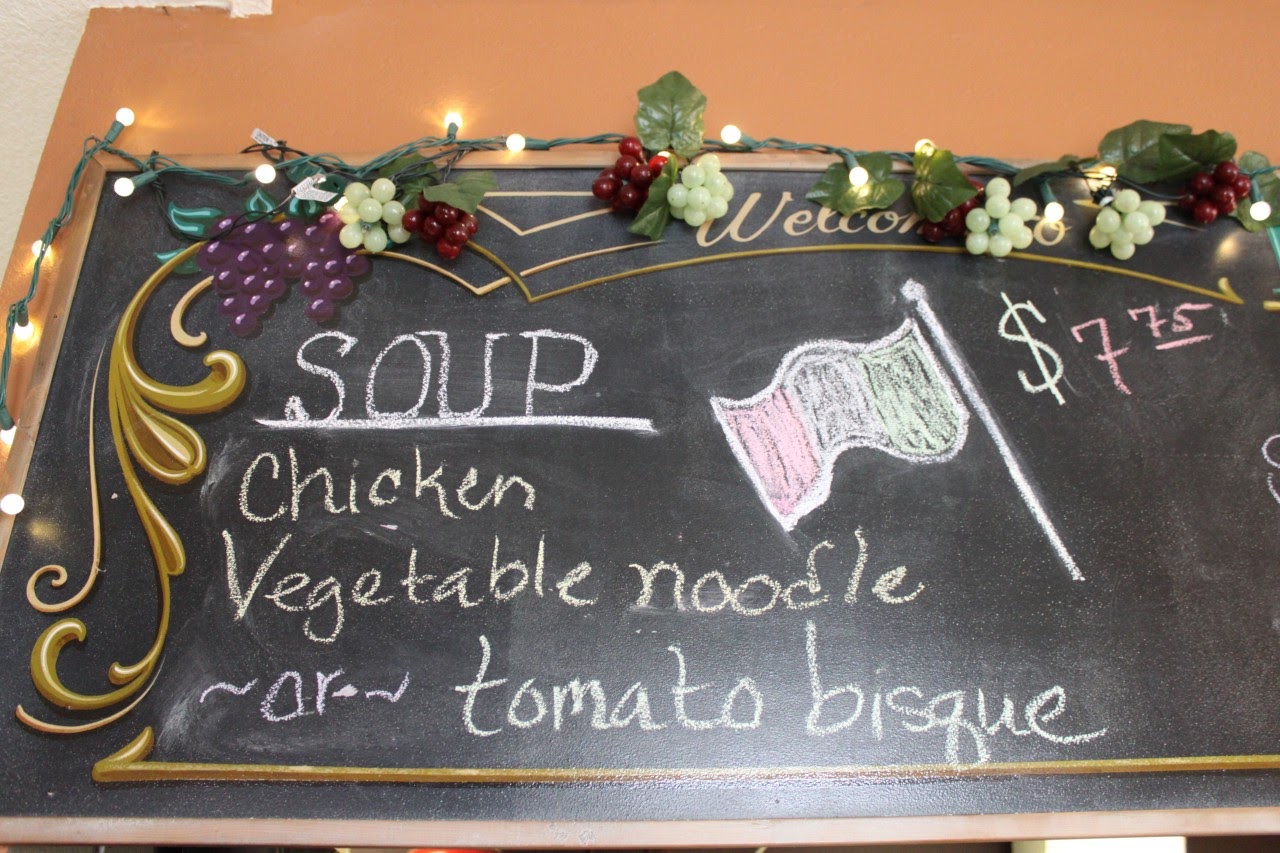 Welcome to
$ 7 75
SOUP
Chicken
Vegetable noodle
~or~ tomato bisque